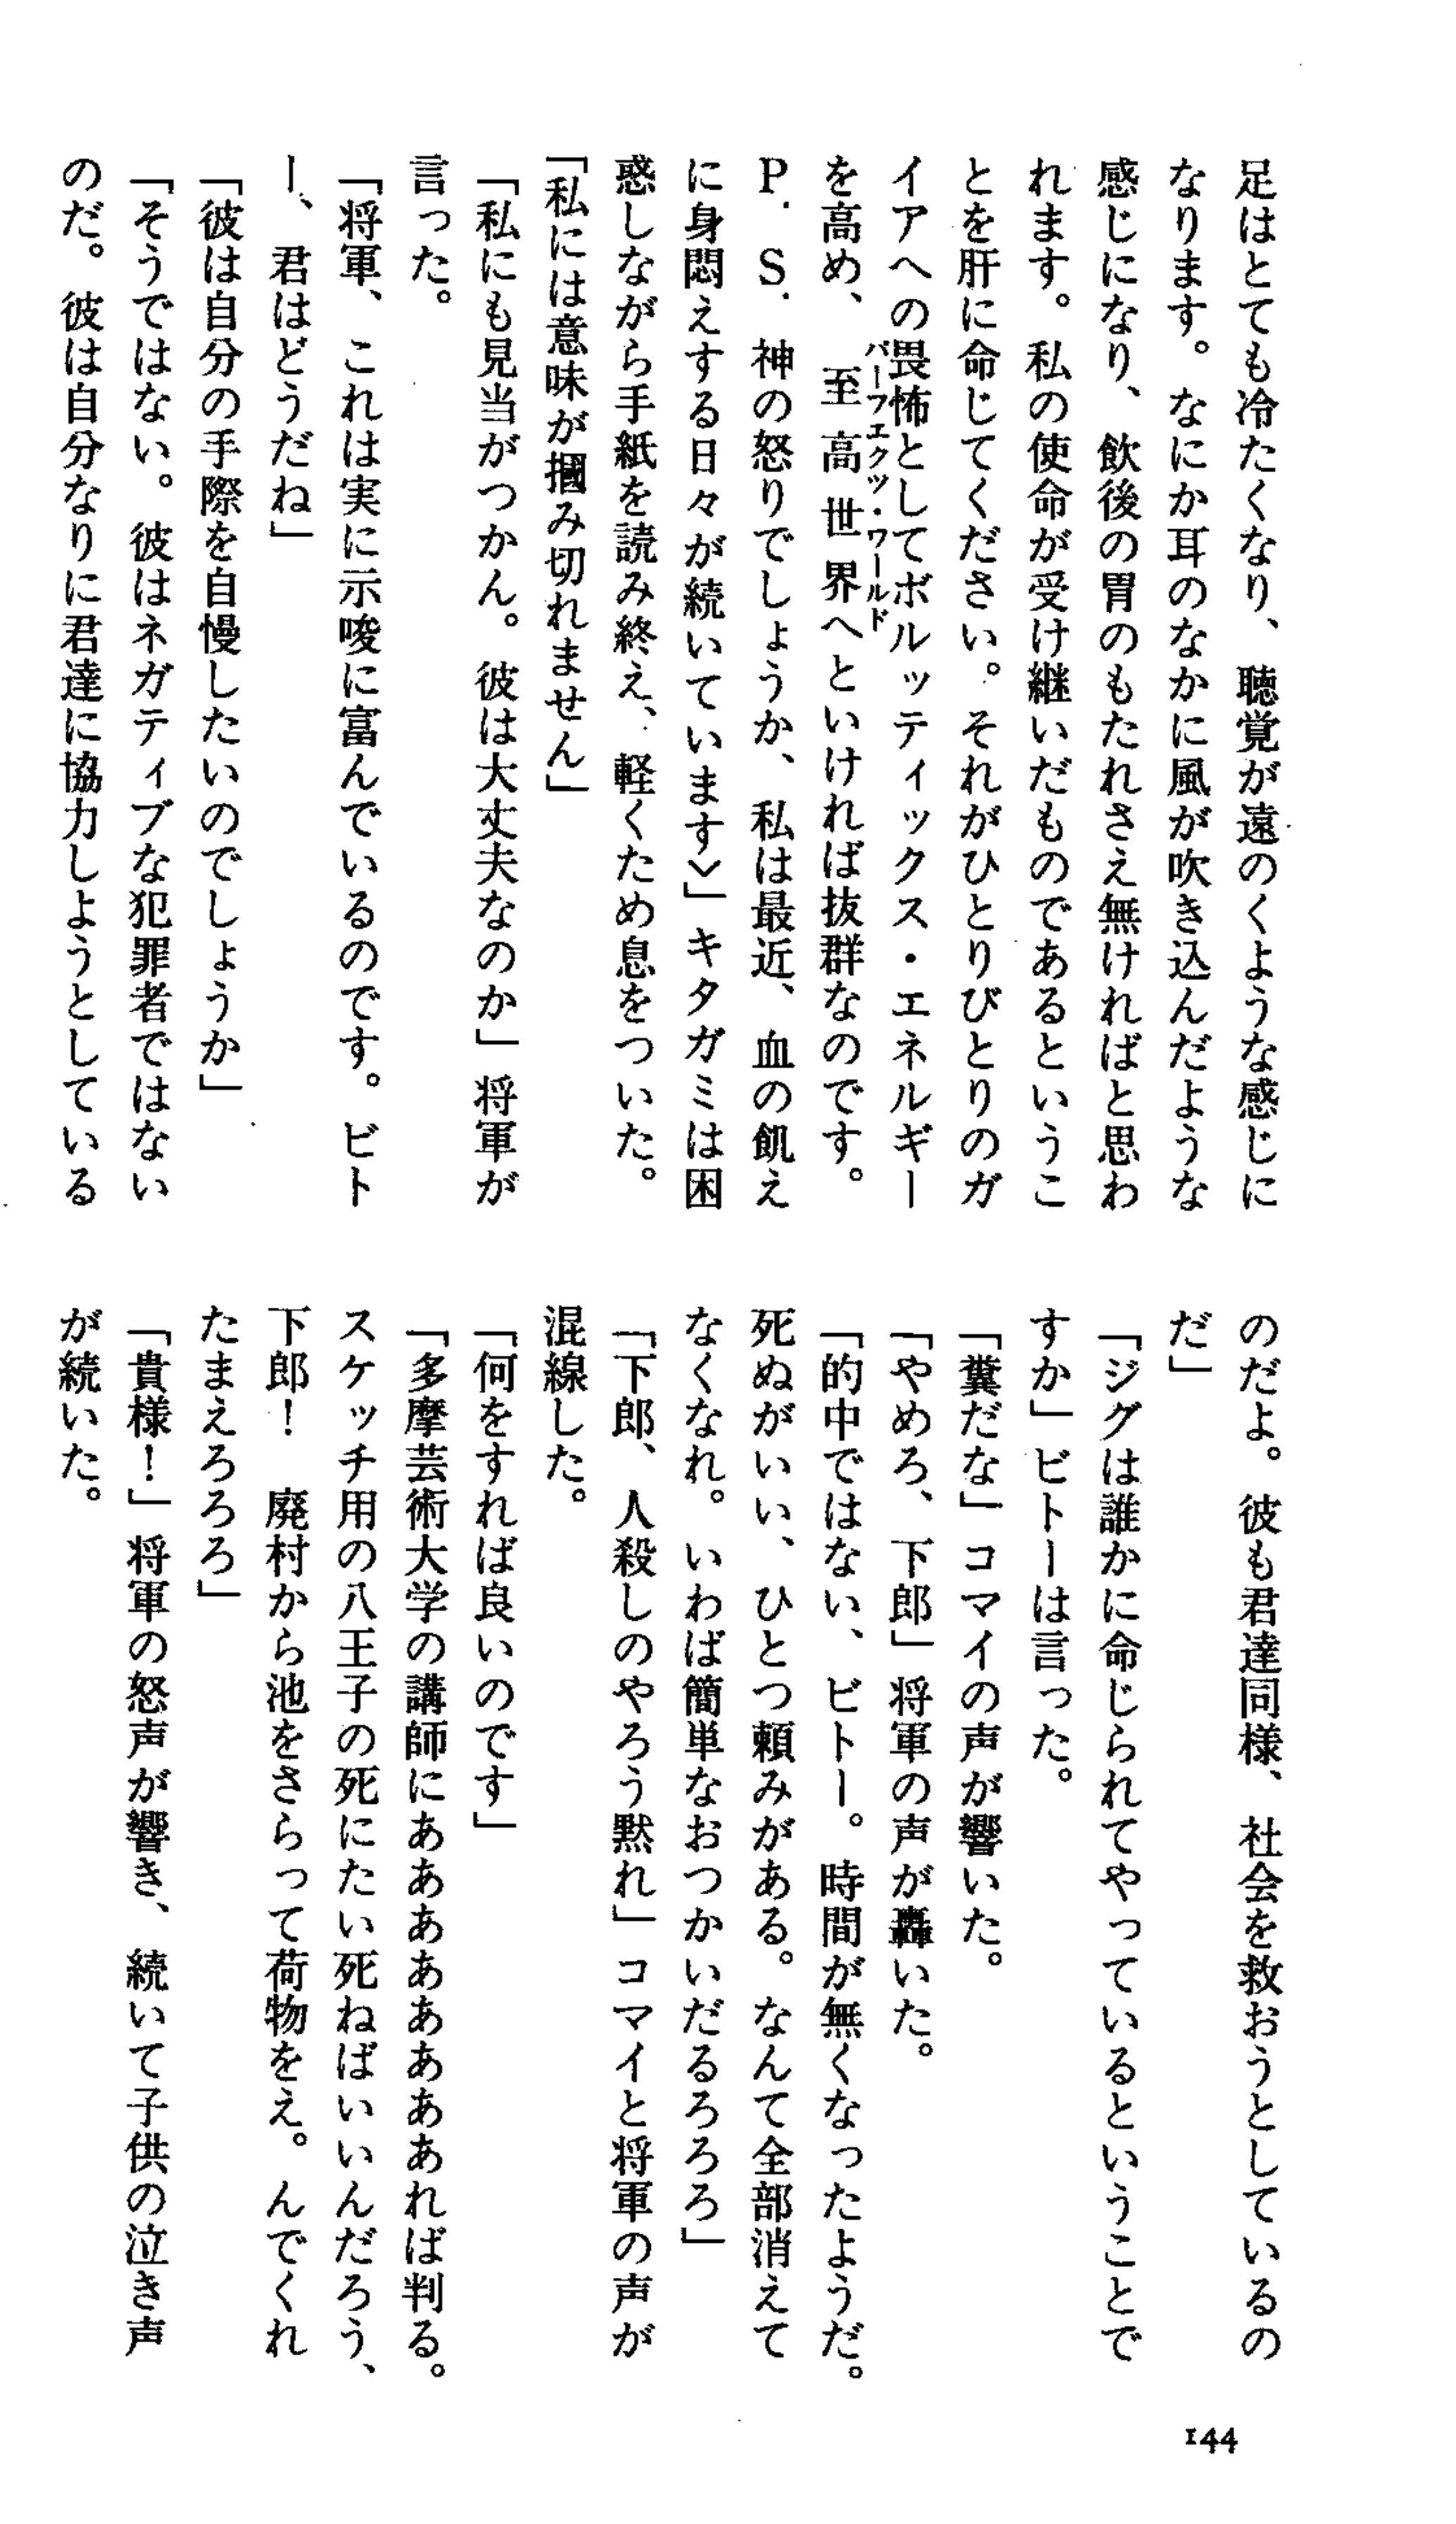 足はとても冷たくなり、聴覚が遠のくような感じに
なります。なにか耳のなかに風が吹き込んだような
感じになり、飲後の胃のもたれさえ無ければと思わ
れます。私の使命が受け継いだものであるというこ
とを肝に命じてください。それがひとりびとりのガ
イアへの畏怖としてボルッティックス・エネルギー
を高め、至高世界へといければ抜群なのです。
パーフエクツ・ワールド
P.S.神の怒りでしょうか、私は最近、血の飢え
に身悶えする日々が続いています〉」キタガミは困
惑しながら手紙を読み終え、軽くため息をついた。
「私には意味が摑み切れません」
「私にも見当がつかん。彼は大丈夫なのか」将軍が
言った。
「将軍、これは実に示唆に富んでいるのです。ビト
ー、君はどうだね」
「彼は自分の手際を自慢したいのでしょうか」
「そうではない。彼はネガティブな犯罪者ではない
のだ。彼は自分なりに君達に協力しようとしている
のだよ。彼も君達同様、社会を救おうとしているの
だ」
「ジグは誰かに命じられてやっているということで
すか」ビトーは言った。
「糞だな」コマイの声が響いた。
「やめろ、下郎」将軍の声が轟いた。
「的中ではない、ビトー。時間が無くなったようだ。
死ぬがいい、ひとつ頼みがある。なんて全部消えて
なくなれ。いわば簡単なおつかいだるろろろ」
「下郎、人殺しのやろう黙れ」コマイと将軍の声が
混線した。
「何をすれば良いのです」
「多摩芸術大学の講師にあああああああれば判る。
スケッチ用の八王子の死にたい死ねばいいんだろう、
下郎！　廃村から池をさらって荷物をえ。んでくれ
たまえろろろ」
「貴様！」将軍の怒声が響き、続いて子供の泣き声
が続いた。
144